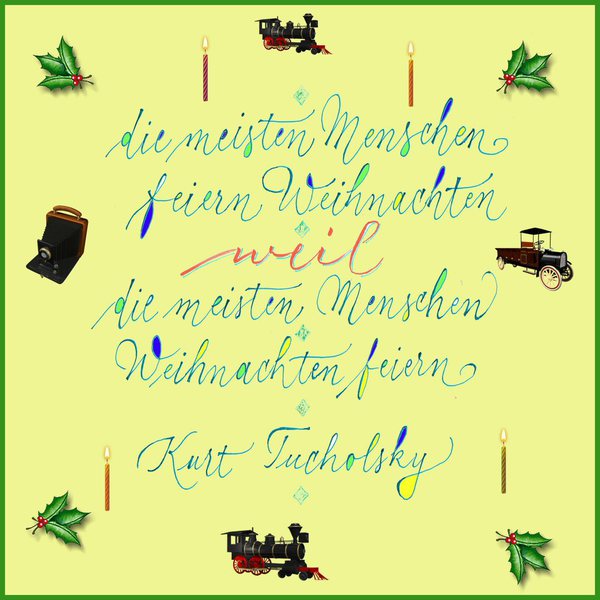 die meisten Menschen
feiern Weihnachten
weil
die meisten Menschen
Weihnachten feiern
Kurt Tucholsky